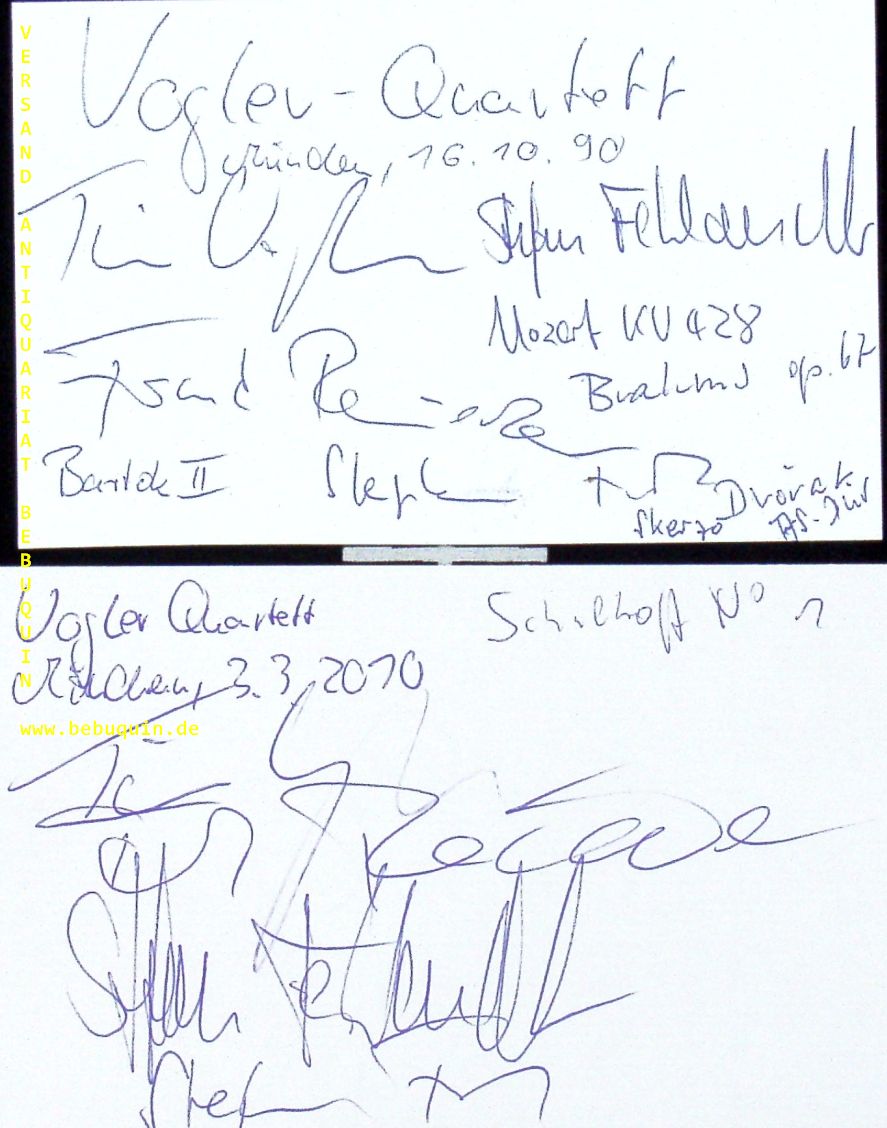 Vogler-Quartett
München, 16.10.90
Tim Vogler
Stefan Fehlandt
Mozart KV 428
Frank Reinecke
Brahms op. 67
Bartók II
Stephan
Skerzo
Dvořák
As-Dur
Vogler Quartett
Schulhoff No 1
München, 3.3.2010
Tim
Reinecke
Stefan Fehlandt
Stephan
VERSAND ANTIQUARIAT BEBUQUIN
www.bebuquin.de